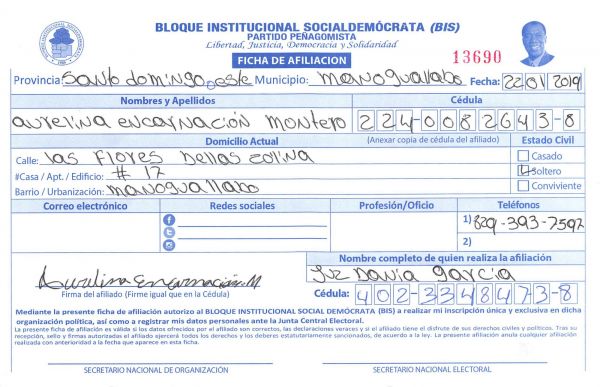 BLOQUE INSTITUCIONAL SOCIALDEMÓCRATA (BIS)
PARTIDO PEÑAGOMISTA
Libertad, Justicia, Democracia y Solidaridad
FICHA DE AFILIACION 13690
Provincia: Santo domingo este Municipio: manoguallabo Fecha: 22/01/2019
Nombres y Apellidos Cédula
aurelina encarnación montero 224-0082643-8
Domicilio Actual (Anexar copia de cédula del afiliado) Estado Civil
Calle: Las Flores Bellas Colina Casado
#Casa / Apt. / Edificio: # 17 Soltero
Barrio / Urbanización: manoguallabo Conviviente
Correo electrónico Redes sociales Profesión/Oficio Teléfonos
1) 829-393-7592
2)
Nombre completo de quien realiza la afiliación
Luz Dania Garcia
Aurelina Encarnación.M
Firma del afiliado (Firme igual que en la Cédula) Cédula: 402-3348473-8
Mediante la presente ficha de afiliación autorizo al BLOQUE INSTITUCIONAL SOCIAL DEMÓCRATA (BIS) a realizar mi inscripción única y exclusiva en dicha
organización política, así como a registrar mis datos personales ante la Junta Central Electoral.
La presente ficha de afiliación es válida si los datos ofrecidos por el afiliado son correctos, las declaraciones veraces y si el afiliado tiene el disfrute de sus derechos civiles y políticos. Tras su
recepción, sello y firmas autorizadas el afiliado ejercerá todos los derechos y los deberes estatutariamente sancionados, de acuerdo a la ley. La presente afiliación anula cualquier afiliación
realizada con anterioridad a la fecha que aparece en esta ficha.
SECRETARIO NACIONAL DE ORGANIZACIÓN SECRETARIO NACIONAL ELECTORAL